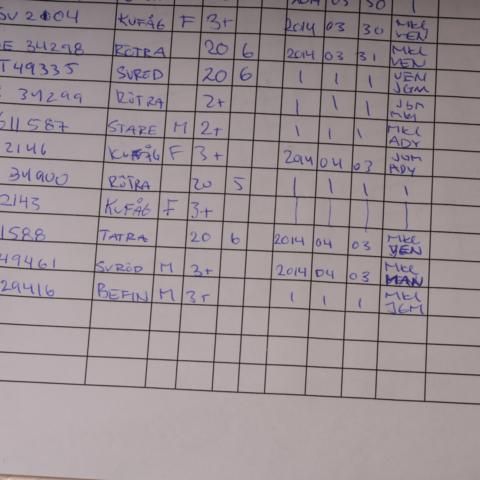 2014 03 30 1
SV 2104 KUFÅG F 3+ 2014 03 30 MKL VEN
E 34298 RÖTRA 20 6 2014 03 31 MKL VEN
T49335 SVRÖD 20 6 1 1 1 VEN JGM
34299 RÖTRA 2+ 1 1 1 JGM MKL
611587 STARE M 2+ 1 1 1 MKL ADY
2146 KUFÅG F 3+ 2014 04 03 JGM ADY
34900 RÖTRA 20 5 1 1 1 1
2143 KUFÅG F 3+
1588 TATRA 20 6 2014 04 03 MKL VEN
49461 SVRÖD M 3+ 2014 04 03 MKL MAN
29416 BEFIN M 3+ 1 1 1 MKL JGM